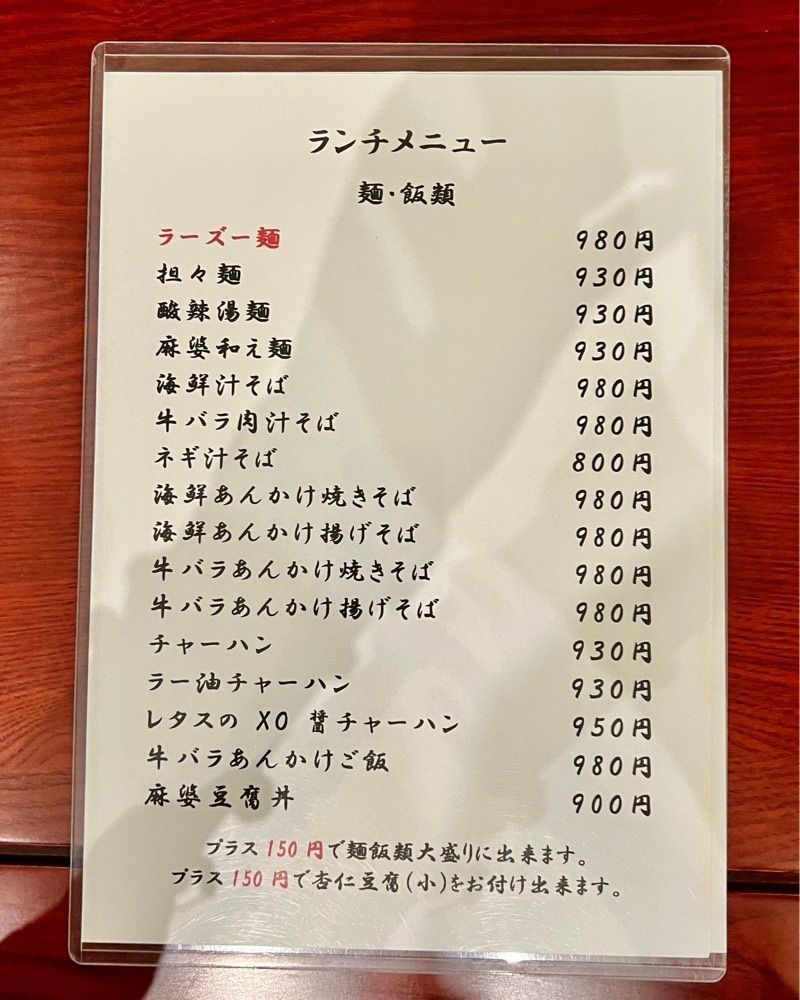 ランチメニュー
麺・飯類
ラーズー麺 980円
担々麺 930円
酸辣湯麺 930円
麻婆和え麺 930円
海鮮汁そば 980円
牛バラ肉汁そば 980円
ネギ汁そば 800円
海鮮あんかけ焼きそば 980円
海鮮あんかけ揚げそば 980円
牛バラあんかけ焼きそば 980円
牛バラあんかけ揚げそば 980円
チャーハン 930円
ラー油チャーハン 930円
レタスの XO 醤チャーハン 950円
牛バラあんかけご飯 980円
麻婆豆腐丼 900円
プラス150円で麺飯類大盛りに出来ます。
プラス150円で杏仁豆腐(小)をお付け出来ます。